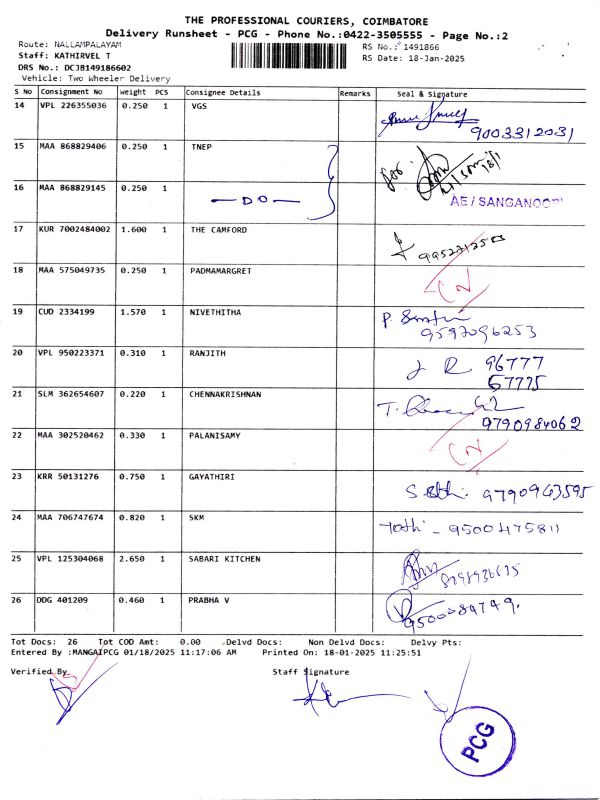 THE PROFESSIONAL COURIERS, COIMBATORE
Delivery Runsheet - PCG - Phone No.:0422-3505555 - Page No.:2
Route: NALLAMPALAYAM
RS No.: 1491866
Staff: KATHIRVEL T
RS Date: 18-Jan-2025
DRS No.: DCJB149186602
Vehicle: Two Wheeler Delivery
S No Consignment No Weight PCS Consignee Details Remarks Seal & Signature
14 VPL 226355036 0.250 1 VGS
9003312031
15 MAA 868829406 0.250 1 TNEP
for.
16 MAA 868829145 0.250 1 —DO—
AE / SANGANOOR
17 KUR 7002484002 1.600 1 THE CAMFORD
18 MAA 575049735 0.250 1 PADMAMARGRET
19 CUD 2334199 1.570 1 NIVETHITHA
9597096253
20 VPL 950223371 0.310 1 RANJITH
J R 96777
67775
21 SLM 362654607 0.220 1 CHENNAKRISHNAN
9790984062
22 MAA 302520462 0.330 1 PALANISAMY
23 KRR 50131276 0.750 1 GAYATHIRI
9790943595
24 MAA 706747674 0.820 1 SKM
9500475811
25 VPL 125304068 2.650 1 SABARI KITCHEN
26 DDG 401209 0.460 1 PRABHA V
Tot Docs: 26 Tot COD Amt: 0.00 .Delvd Docs: Non Delvd Docs: Delvy Pts:
Entered By :MANGAIPCG 01/18/2025 11:17:06 AM Printed On: 18-01-2025 11:25:51
Verified By Staff Signature
PCG